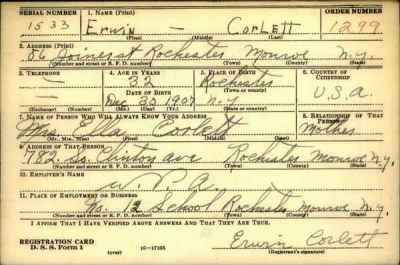 SERIAL NUMBER 1. NAME (Print) ORDER NUMBER
1533 Erwin — Corlett 1299
(First) (Middle) (Last)
2. ADDRESS (Print)
86 Joiner St Rochester Monroe N.Y.
(Number and street or R. F. D. number) (Town) (County) (State)
3. TELEPHONE 4. AGE IN YEARS 5. PLACE OF BIRTH 6. COUNTRY OF CITIZENSHIP
— 32 Rochester
DATE OF BIRTH (Town or county)
— Dec 30 1907 N.Y. U.S.A.
(Exchange) (Number) (Mo.) (Day) (Yr.) (State or country)
7. NAME OF PERSON WHO WILL ALWAYS KNOW YOUR ADDRESS 8. RELATIONSHIP OF THAT PERSON
Mrs. Ella Corlett Mother
(Mr., Mrs., Miss) (First) (Middle) (Last)
9. ADDRESS OF THAT PERSON
782 So. Clinton ave Rochester Monroe N.Y.
(Number and street or R. F. D. number) (Town) (County) (State)
10. EMPLOYER'S NAME
W.P.A.
11. PLACE OF EMPLOYMENT OR BUSINESS
No. 12 School Rochester Monroe N.Y.
(Number and street or R. F. D. number) (Town) (County) (State)
I AFFIRM THAT I HAVE VERIFIED ABOVE ANSWERS AND THAT THEY ARE TRUE.
REGISTRATION CARD
D. S. S. Form 1 (over) 16—17105 Erwin Corlett
(Registrant's signature)